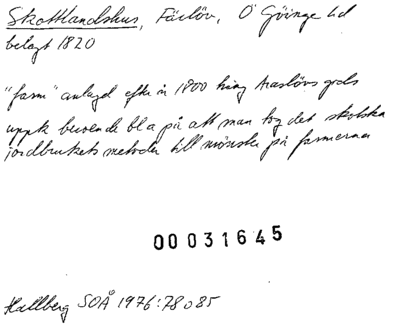 Skottlandshus, Färlöv, Ö Göinge hd
belagt 1820
"farm" anlagd efter 1800 kring Araslövs gods
uppk beroende bl a på att man tog det skotska
jordbrukets metoder till mönster på farmerna
00031645
Hallberg SOÅ 1976:78 o 85